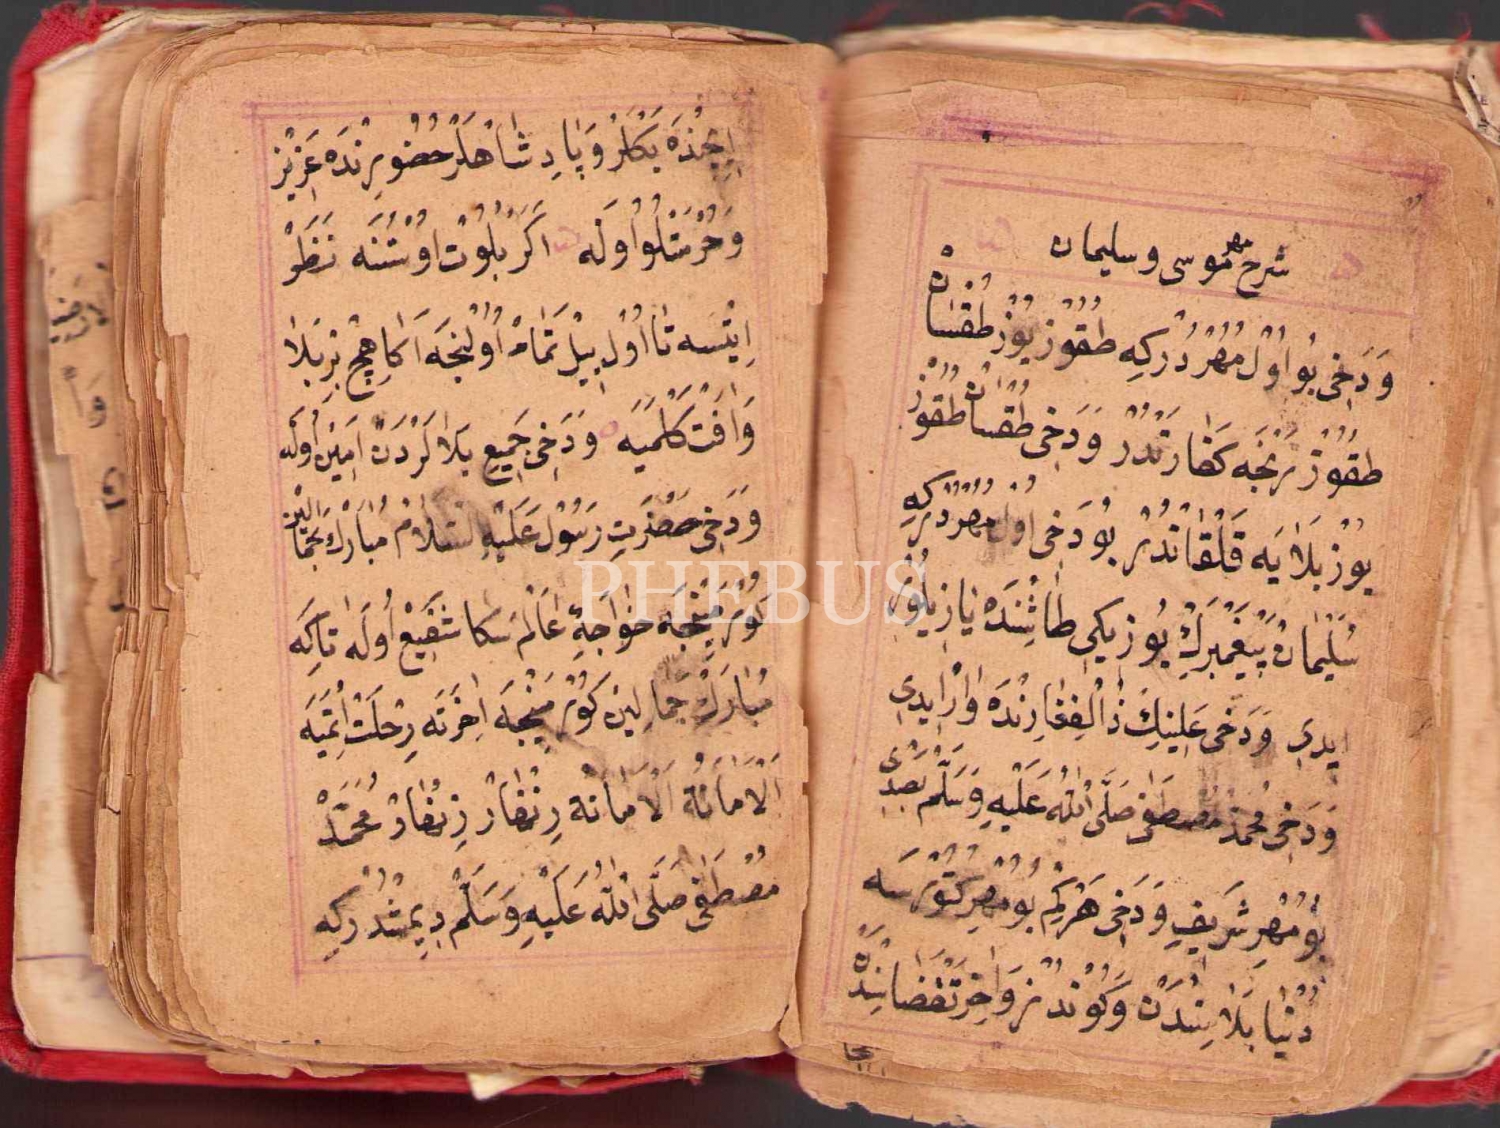 شرح مهر موسى و سليمان
وَدَخِى بُو اُولْ مُهُرْدُرْكِه طُقُوزْ يُوزْ طُقْسَانْ
طُقُوزْ رَنْجَه كَفَارَتْدُرْ وَدَخِى طُقْسَانْ طُقُوزْ
يُوزْ بَلَايَه قَلْقَانْدُرْ بُو دَخِى اُولْ مُهُرْدُرْكِه
سُلَيْمَانْ پَيْغَمْبَرِكْ يُوزِيكِى طَاشِنْدَه يَازِيلُو
ايدِى وَدَخِى عَلِينِكْ ذُالْفِقَارِنْدَه وَارْ ايدِى
وَدَخِى مُحَمَّدْ مُصْطَفَى صَلَّى اللهُ عَلَيْهِ وَسَلَّمْ
بُو مُهْرِ شَرِيفِ وَدَخِى هَرْ كِمْ بُو مُهْرِ كُتُرْسَه
دُنْيَا بَلَاسِنْدَنْ وَ وَاخِرَتْ
اِچِنْدَه بَكْلَرْ وَپَادِشَاهْلَرْ حُضُورِنْدَه عَزِيزْ
وَحُرْمَتْلُو اُولَه اَكَرْ بُلُوتْ اُوسْتُنَه نَظَرْ
اِيتْسَه تَا اُولْ يِيلْ تَمَامْ اُولُنْجَه اَكَا هِيچْ بِرْ بَلَا
وَافَتْ كَلْمَيَه وَدَخِى جَمِيعِ بَلَالَرْدَنْ اَمِينْ اُولَه
وَدَخِى حَضْرَتِ رَسُولْ عَلَيْهِ السَّلَامْ مُبَارَكْ جَمَالِينْ
كُورْمَيِنْجَه خَوَاجَهِٔ عَالَمْ سَكَا شَفِيعْ اُولَه تَاكِه
مُبَارَكْ جَمَالِينْ كُورْمَيِنْجَه اَخِرَتَه رِحْلَتْ اِتْمَيَه
اَلْاَمَانَة اَلْاَمَانَة زِنْهَارْ زِنْهَارْ مُحَمَّدْ
مُصْطَفَى صَلَّى اللهُ عَلَيْهِ وَسَلَّمْ دِيمِشْدُرْكِه
PHEBUS